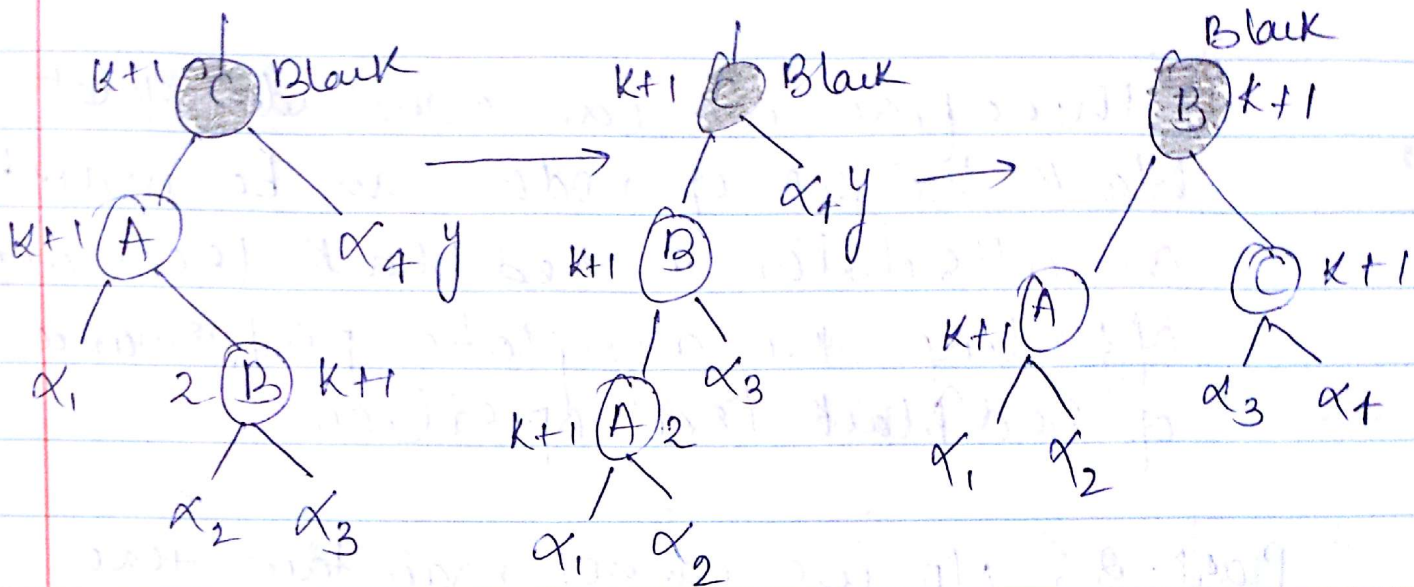 K+1 C Black
K+1 A
α4 y
α1
2 B K+1
α2 α3
K+1 C Black
α4 y
K+1 B
α3
K+1 A 2
α1 α2
Black
B K+1
K+1 A
C K+1
α1 α2
α3 α4